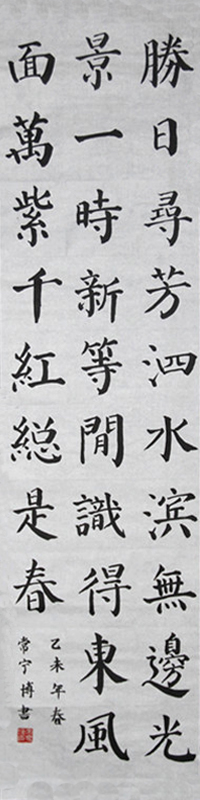 勝日尋芳泗水滨無邊光
景一時新等閒識得東風
面萬紫千紅総是春
乙未年春
常宁博書